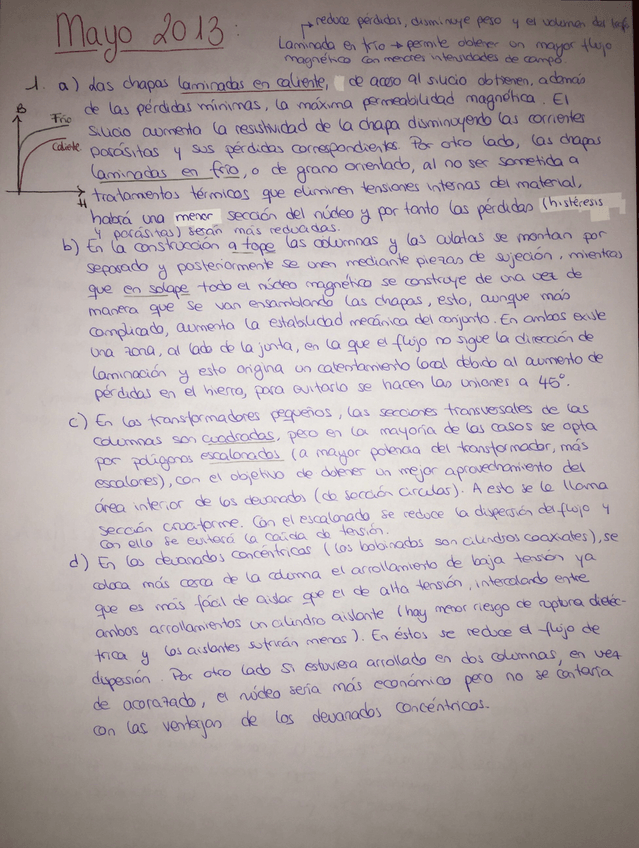 Mayo 2013:
reduce pérdidas, disminuye peso y el volumen del
Laminada en frío → permite obtener un mayor flujo
magnético con menores intensidades de campo.
1. a) Las chapas laminadas en caliente, de acero al silicio obtienen, además
de las pérdidas mínimas, la máxima permeabilidad magnética. El
silicio aumenta la resistividad de la chapa disminuyendo las corrientes
parásitas y sus pérdidas correspondientes. Por otro lado, las chapas
laminadas en frío, o de grano orientado, al no ser sometida a
tratamientos térmicos que eliminen tensiones internas del material,
habrá una menor sección del núcleo y por tanto las pérdidas (histéresis
y parásitas) serán más reducidas.
B
Frío
Caliente
H
b) En la construcción a tope las columnas y las culatas se montan por
separado y posteriormente se unen mediante piezas de sujeción, mientras
que en solape todo el núcleo magnético se construye de una vez de
manera que se van ensamblando las chapas, esto, aunque más
complicado, aumenta la estabilidad mecánica del conjunto. En ambos existe
una zona, al lado de la junta, en la que el flujo no sigue la dirección de
laminación y esto origina un calentamiento local debido al aumento de
pérdidas en el hierro, para evitarlo se hacen las uniones a 45°.
c) En los transformadores pequeños, las secciones transversales de las
columnas son cuadradas, pero en la mayoría de los casos se opta
por polígonos escalonados (a mayor potencia del transformador, más
escalones), con el objetivo de obtener un mejor aprovechamiento del
área interior de los devanados (de sección circular). A esto se le llama
sección cruciforme. Con el escalonado se reduce la dispersión del flujo y
con ello se evitará la caída de tensión.
d) En los devanados concéntricos (los bobinados son cilindros coaxiales), se
coloca más cerca de la columna el arrollamiento de baja tensión ya
que es más fácil de aislar que el de alta tensión, intercalando entre
ambos arrollamientos un cilindro aislante (hay menor riesgo de ruptura dieléc-
trica y los aislantes sufrirán menos). En éstos se reduce el flujo de
dispersión. Por otro lado si estuviera arrollado en dos columnas, en vez
de acorazado, el núcleo sería más económico pero no se contaría
con las ventajas de los devanados concéntricos.